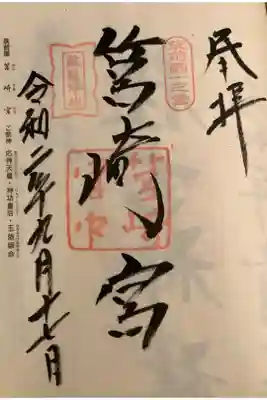 奉拝
筑前國一之宮
筥崎宮
敵國降伏
令和二年九月十七日
筑前國
筥崎宮
ご祭神 応神天皇・神功皇后・玉依姫命